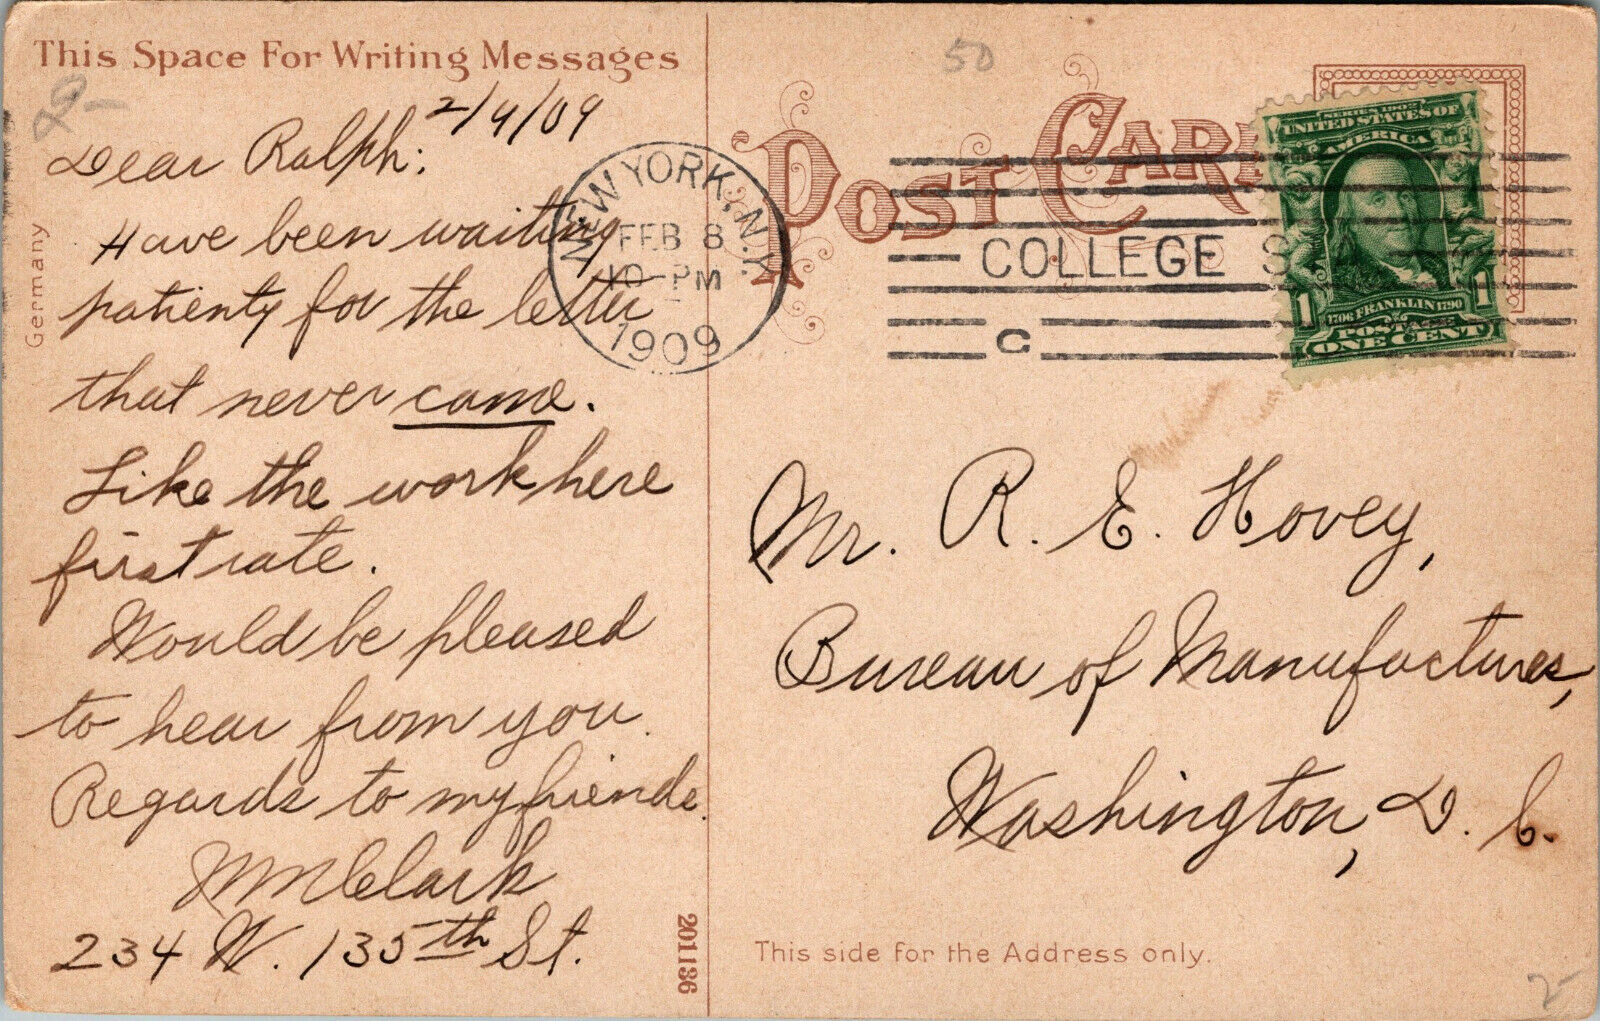 This Space For Writing Messages
2/9/09
Dear Ralph:
Have been waiting
patienty for the letter
that never came.
Like the work here
first rate.
Would be pleased
to hear from you.
Regards to my friends.
Wm Clark
234 W. 135th St.
Germany
201136
50
POST CARD
NEW YORK, N.Y.
FEB 8
10-PM
1909
COLLEGE STA.
C
SERIES 1902
UNITED STATES OF
AMERICA
1706 FRANKLIN 1790
1 1
POSTAGE
ONE CENT
Mr. R. E. Hovey,
Bureau of Manufactures,
Washington, D. C.
This side for the Address only.
2-